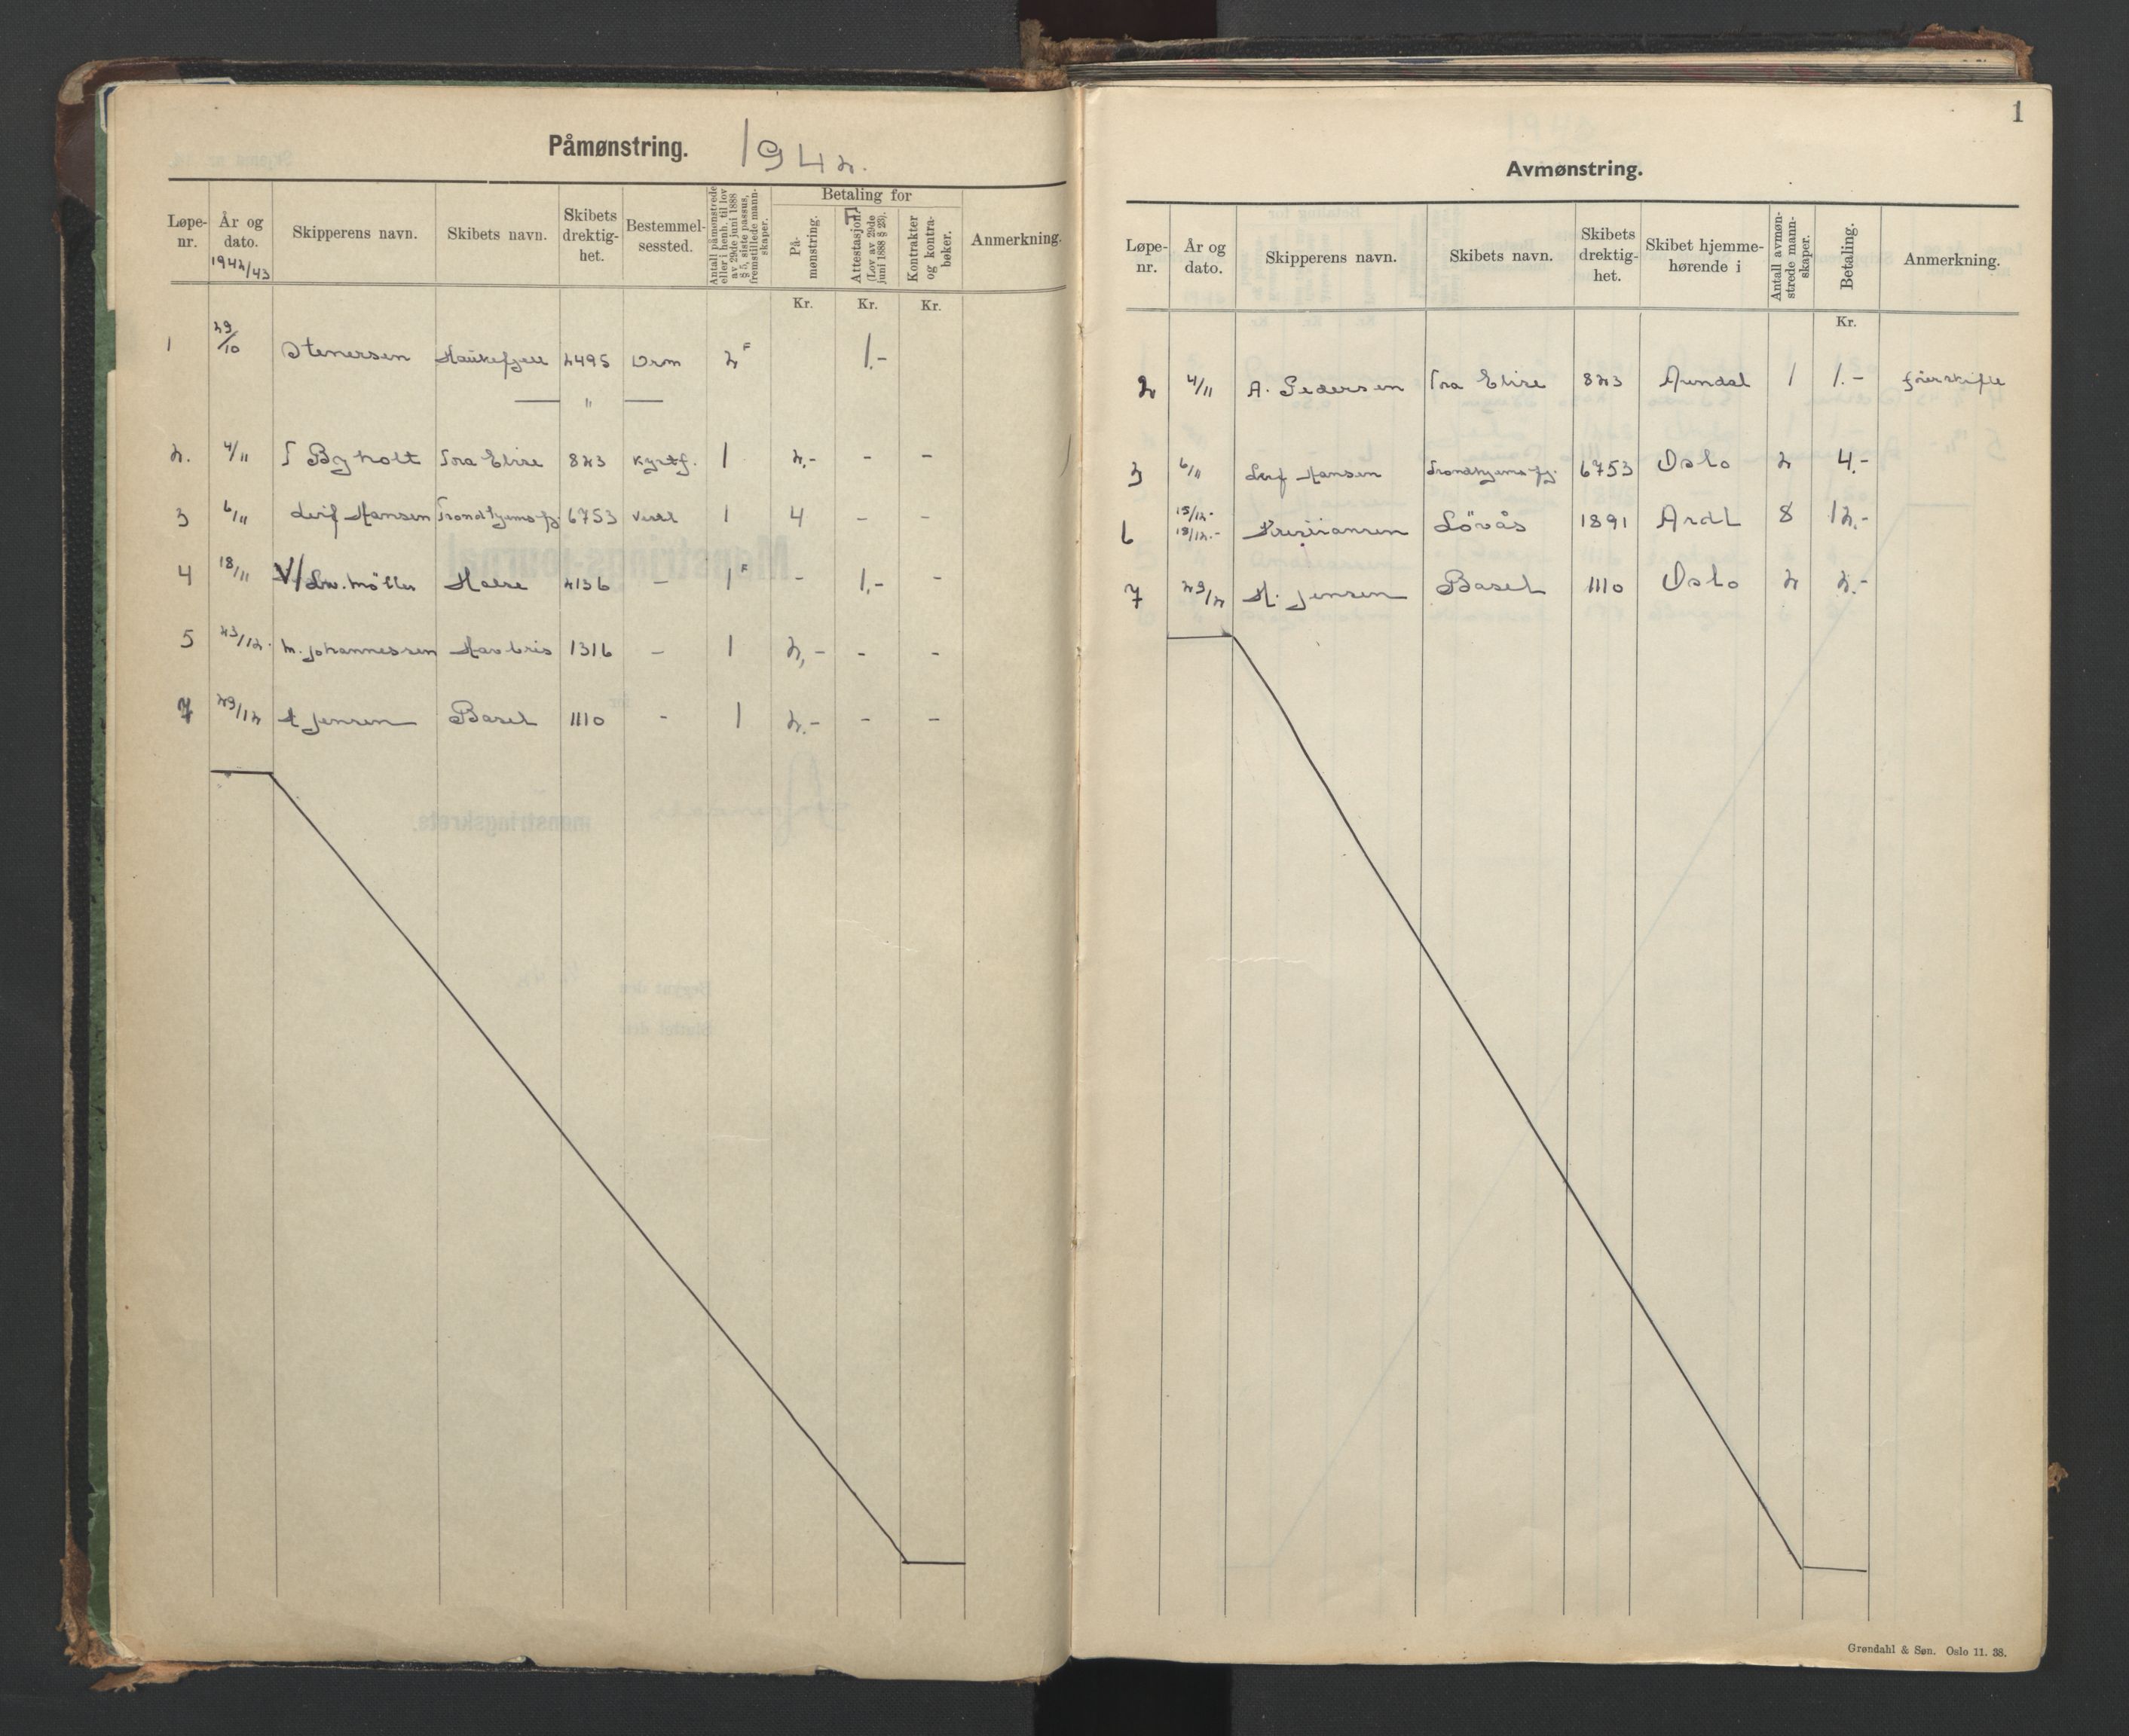 Påmønstring. 1942.
Løpe-nr. År og dato. 1942/43 Skipperens navn. Skibets navn. Skibets drektig-het. Bestemmel-sessted. Antall påmønstrede eller i henh. til lov av 29de juni 1888 § 5, siste passus, fremstillede mann-skaper. Betaling for På-mønstring. Attestasjon. F (Lov av 29de juni 1888 § 23). Kontrakter og kontra-bøker. Anmerkning.
Kr. Kr. Kr.
1 29/10 Stenersen Haukefjell 2495 Drm 2 F 1.-
— " —
2. 4/11 Byholt Tra Elise 823 1 2,- - -
3 6/11 Leif Hansen Trondhjemsfj. 6753 1 4 - -
4 18/11 V/ Møller 2136 - 1 F - 1,- -
5 23/12. M. Johannessen Havbris 1316 - 1 2,- - -
7 29/12 H Jensen Basel 1110 - 1 2.- - -
1
Avmønstring.
Løpe-nr. År og dato. Skipperens navn. Skibets navn. Skibets drektig-het. Skibet hjemme-hørende i Antall avmøn-strede mann-skaper. Betaling. Anmerkning.
Kr.
2 4/11 A. Pedersen Tra Elise 823 Arendal 1 1.- førerskifte
3 6/11 Leif Hansen Trondhjemsfj. 6753 Oslo 2 4.-
6 15/12.- 18/12.- Kristiansen Lövås 1891 Ardl 8 12.-
7 29/12 H. Jensen Basel 1110 Oslo 2 2.-
Grøndahl & Søn. Oslo 11. 38.